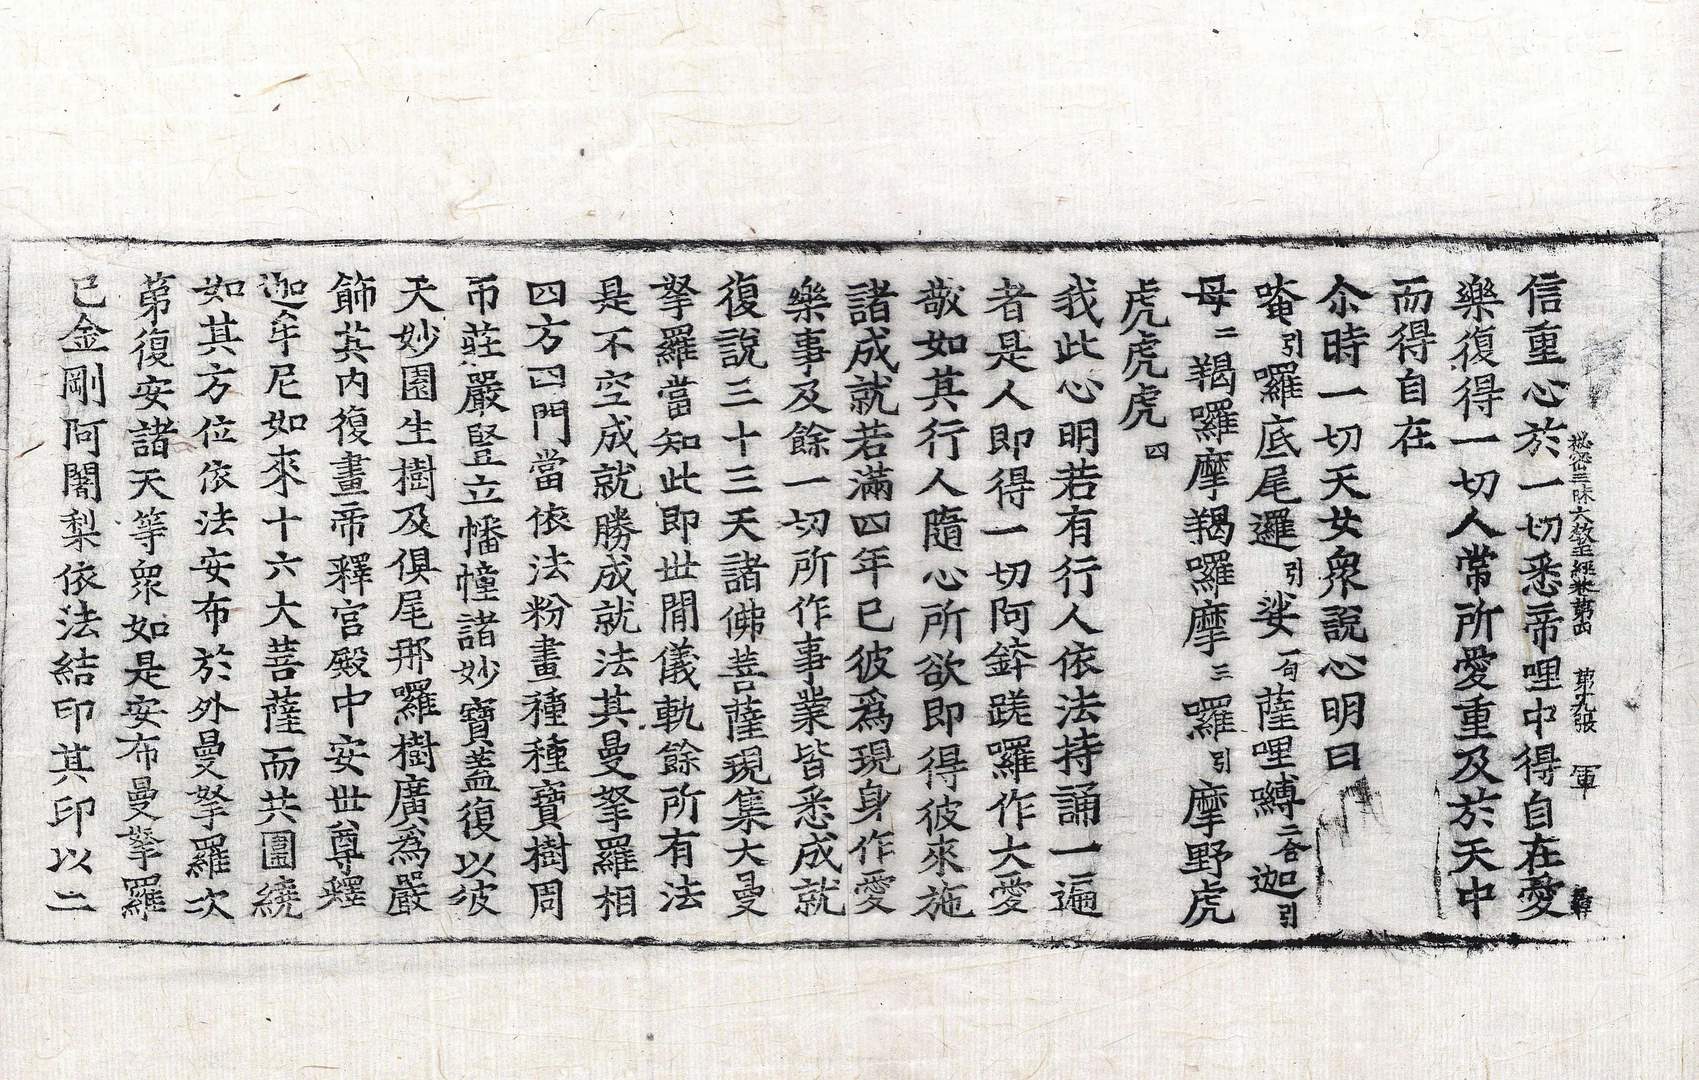 秘密三昧大教王經卷第四　第九張　軍
信重心於一切悉帝哩中得自在愛
樂復得一切人常所愛重及於天中
而得自在
尒時一切天女衆說心明曰
唵引囉底尾邏引娑一句薩哩嚩二合迦引
母二羯囉摩羯囉摩三囉引摩野虎
虎虎虎四
我此心明若有行人依法持誦一遍
者是人即得一切阿鉾蹉羅作大愛
敬如其行人隨心所欲即得彼來施
諸成就若滿四年已彼爲現身作愛
樂事及餘一切所作事業皆悉成就
復說三十三天諸佛菩薩現集大曼
拏羅當知此即世間儀軌餘所有法
是不空成就勝成就法其曼拏羅相
四方四門當依法粉畫種種寶樹周
帀莊嚴豎立幡幢諸妙寶蓋復以彼
天妙園生樹及俱尾那囉樹廣爲嚴
飾其內復畫帝釋宮殿中安世尊釋
迦牟尼如來十六大菩薩而共圍繞
如其方位依法安布於外曼拏羅次
第復安諸天等衆如是安布曼拏羅
已金剛阿闍梨依法結印其印以二